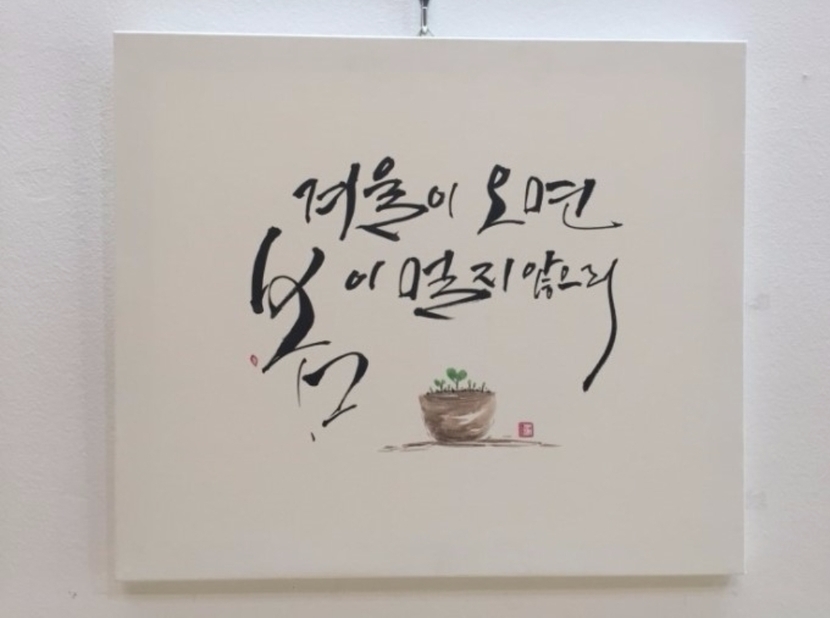 겨울이 오면
봄이 멀지 않으리